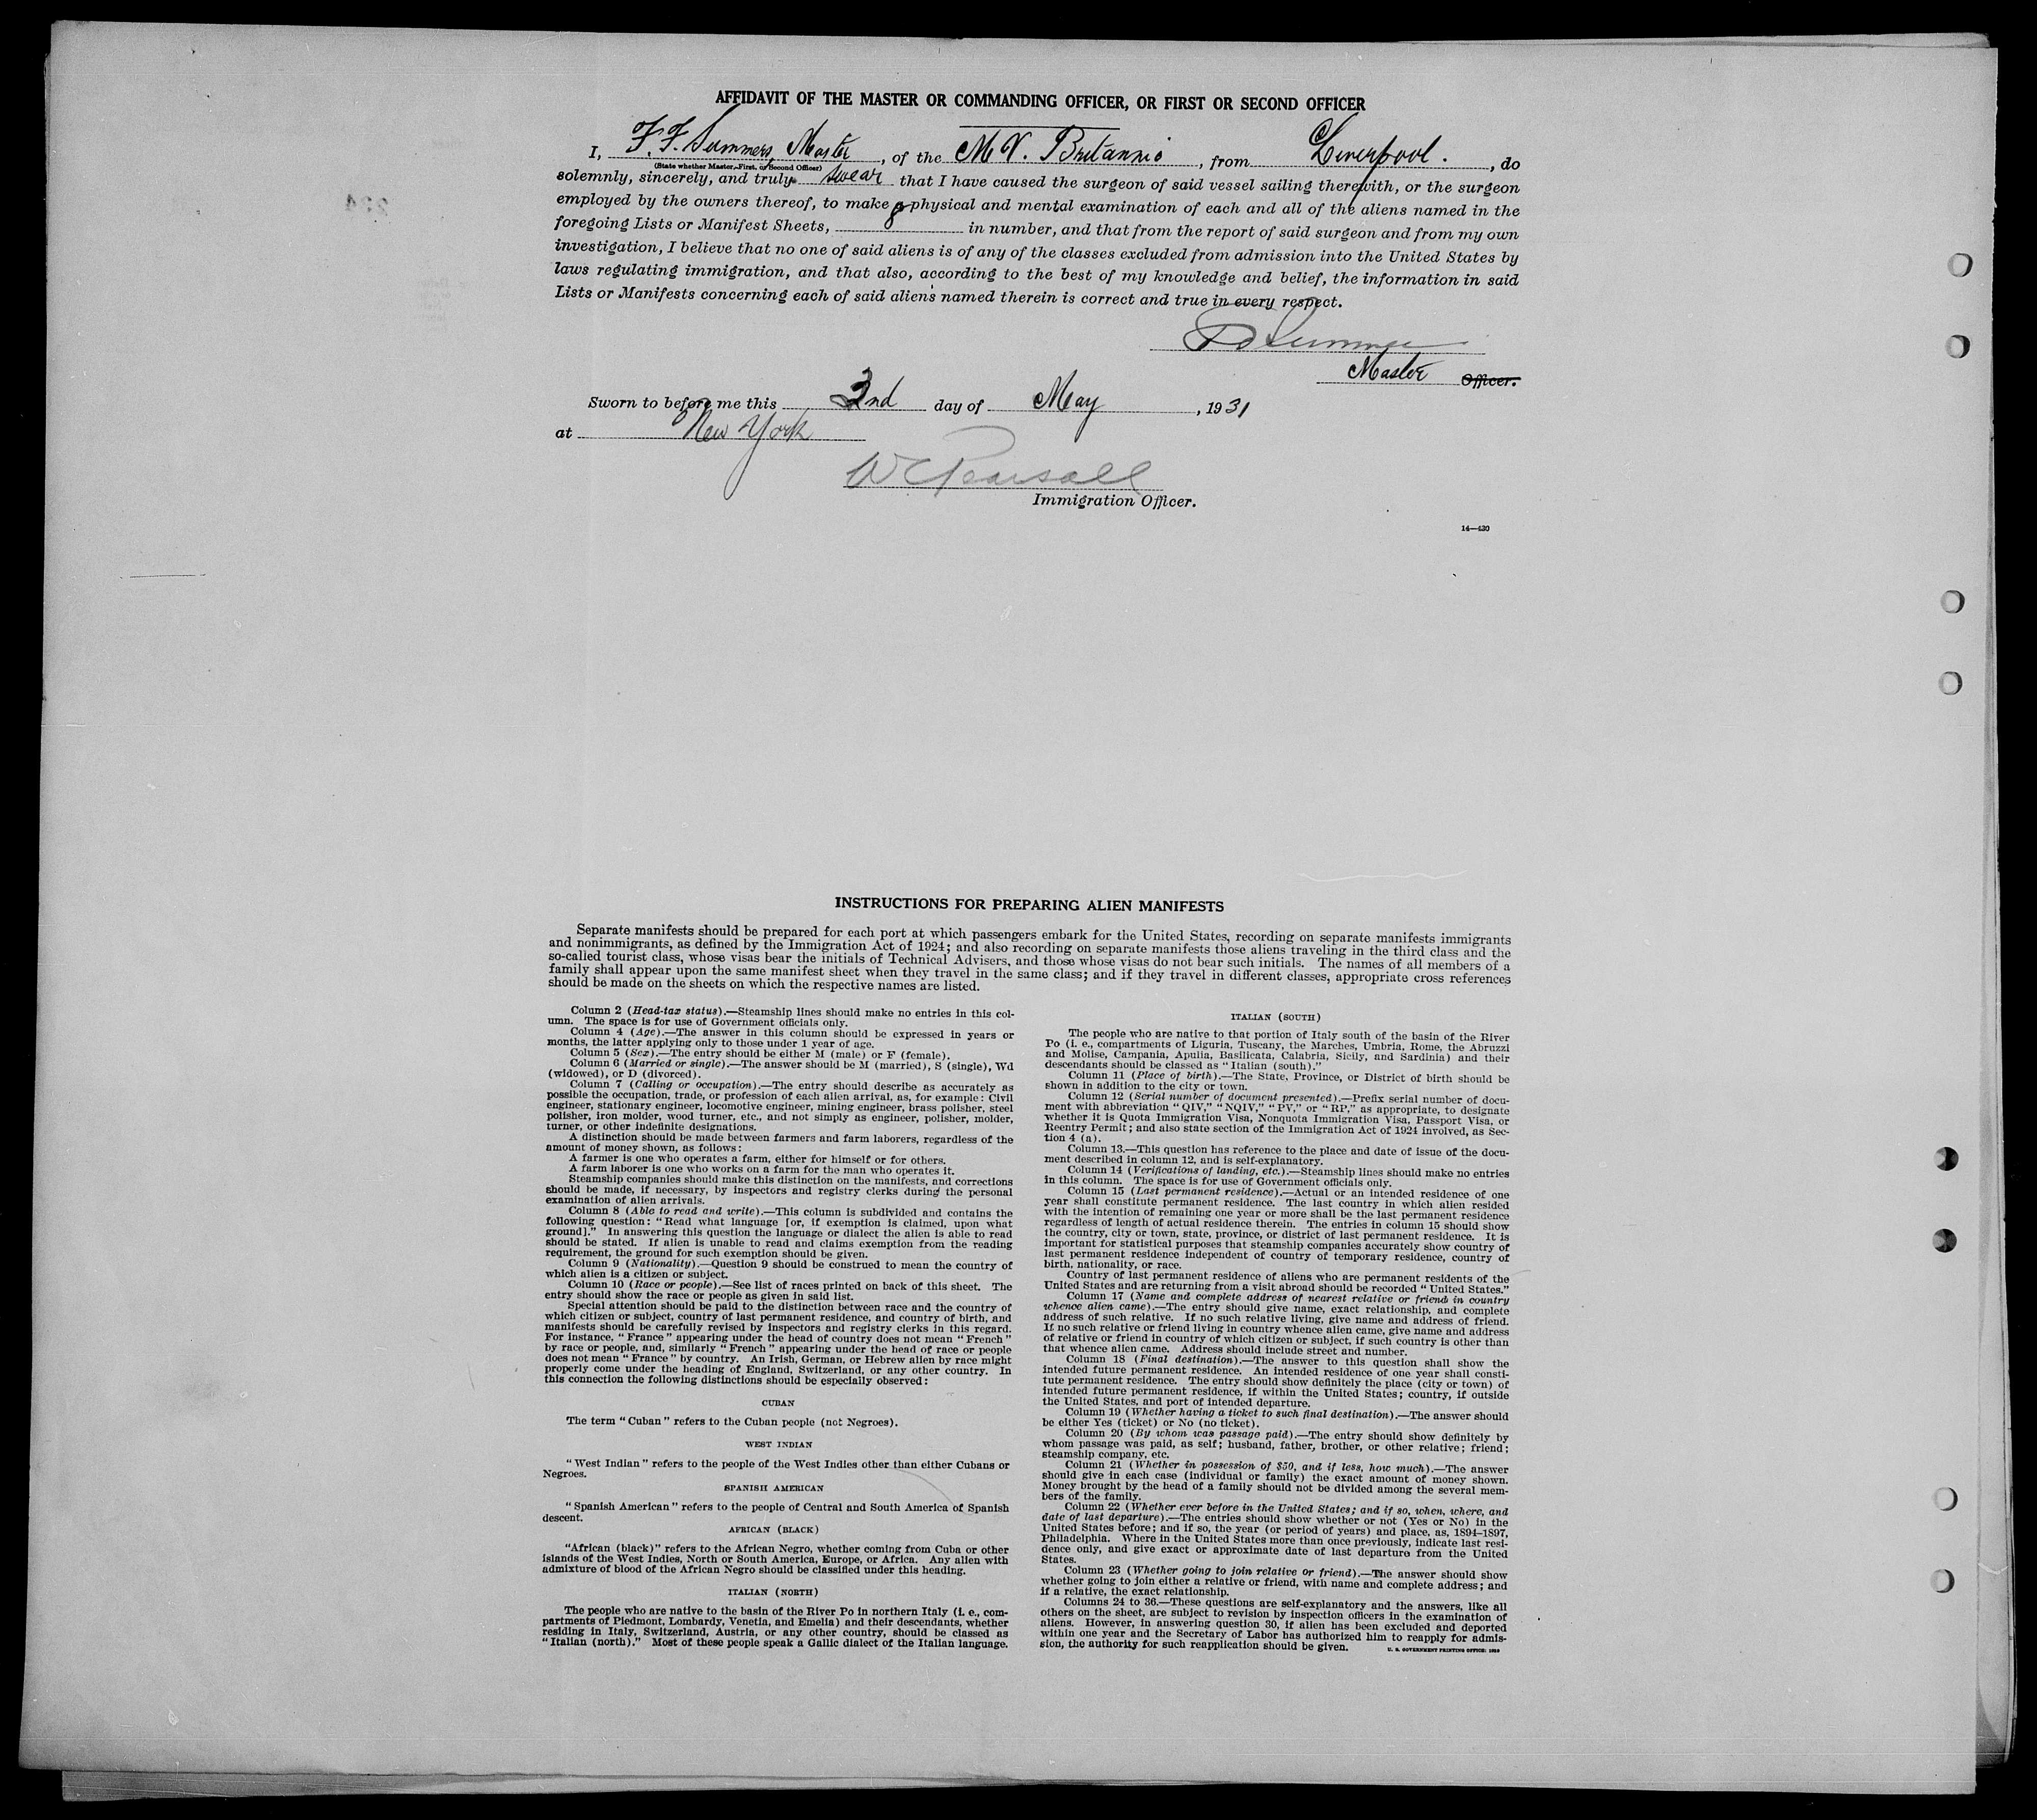 AFFIDAVIT OF THE MASTER OR COMMANDING OFFICER, OR FIRST OR SECOND OFFICER
I, F. F. Summers, Master, of the M V. Britannic, from Liverpool., do
(State whether Master, First, or Second Officer)
solemnly, sincerely, and truly swear that I have caused the surgeon of said vessel sailing therewith, or the surgeon
employed by the owners thereof, to make a physical and mental examination of each and all of the aliens named in the
foregoing Lists or Manifest Sheets, 8 in number, and that from the report of said surgeon and from my own
investigation, I believe that no one of said aliens is of any of the classes excluded from admission into the United States by
laws regulating immigration, and that also, according to the best of my knowledge and belief, the information in said
Lists or Manifests concerning each of said aliens named therein is correct and true in every respect.
Master Officer.
Sworn to before me this day of May, 1931
at New York
W C Pearsall
Immigration Officer.
14—430
INSTRUCTIONS FOR PREPARING ALIEN MANIFESTS
Separate manifests should be prepared for each port at which passengers embark for the United States, recording on separate manifests immigrants
and nonimmigrants, as defined by the Immigration Act of 1924; and also recording on separate manifests those aliens traveling in the third class and the
so-called tourist class, whose visas bear the initials of Technical Advisers, and those whose visas do not bear such initials. The names of all members of a
family shall appear upon the same manifest sheet when they travel in the same class; and if they travel in different classes, appropriate cross references
should be made on the sheets on which the respective names are listed.
Column 2 (Head-tax status).—Steamship lines should make no entries in this col-
umn. The space is for use of Government officials only.
Column 4 (Age).—The answer in this column should be expressed in years or
months, the latter applying only to those under 1 year of age.
Column 5 (Sex).—The entry should be either M (male) or F (female).
Column 6 (Married or single).—The answer should be M (married), S (single), Wd
(widowed), or D (divorced).
Column 7 (Calling or occupation).—The entry should describe as accurately as
possible the occupation, trade, or profession of each alien arrival, as, for example: Civil
engineer, stationary engineer, locomotive engineer, mining engineer, brass polisher, steel
polisher, iron molder, wood turner, etc., and not simply as engineer, polisher, molder,
turner, or other indefinite designations.
A distinction should be made between farmers and farm laborers, regardless of the
amount of money shown, as follows:
A farmer is one who operates a farm, either for himself or for others.
A farm laborer is one who works on a farm for the man who operates it.
Steamship companies should make this distinction on the manifests, and corrections
should be made, if necessary, by inspectors and registry clerks during the personal
examination of alien arrivals.
Column 8 (Able to read and write).—This column is subdivided and contains the
following question: "Read what language [or, if exemption is claimed, upon what
ground]." In answering this question the language or dialect the alien is able to read
should be stated. If alien is unable to read and claims exemption from the reading
requirement, the ground for such exemption should be given.
Column 9 (Nationality).—Question 9 should be construed to mean the country of
which alien is a citizen or subject.
Column 10 (Race or people).—See list of races printed on back of this sheet. The
entry should show the race or people as given in said list.
Special attention should be paid to the distinction between race and the country of
which citizen or subject, country of last permanent residence, and country of birth, and
manifests should be carefully revised by inspectors and registry clerks in this regard.
For instance, "France" appearing under the head of country does not mean "French"
by race or people, and, similarly "French" appearing under the head of race or people
does not mean "France" by country. An Irish, German, or Hebrew alien by race might
properly come under the heading of England, Switzerland, or any other country. In
this connection the following distinctions should be especially observed:
CUBAN
The term "Cuban" refers to the Cuban people (not Negroes).
WEST INDIAN
"West Indian" refers to the people of the West Indies other than either Cubans or
Negroes.
SPANISH AMERICAN
"Spanish American" refers to the people of Central and South America of Spanish
descent.
AFRICAN (BLACK)
"African (black)" refers to the African Negro, whether coming from Cuba or other
islands of the West Indies, North or South America, Europe, or Africa. Any alien with
admixture of blood of the African Negro should be classified under this heading.
ITALIAN (NORTH)
The people who are native to the basin of the River Po in northern Italy (i. e., com-
partments of Piedmont, Lombardy, Venetia, and Emelia) and their descendants, whether
residing in Italy, Switzerland, Austria, or any other country, should be classed as
"Italian (north)." Most of these people speak a Gallic dialect of the Italian language.
ITALIAN (SOUTH)
The people who are native to that portion of Italy south of the basin of the River
Po (i. e., compartments of Liguria, Tuscany, the Marches, Umbria, Rome, the Abruzzi
and Molise, Campania, Apulia, Basilicata, Calabria, Sicily, and Sardinia) and their
descendants should be classed as "Italian (south)."
Column 11 (Place of birth).—The State, Province, or District of birth should be
shown in addition to the city or town.
Column 12 (Serial number of document presented).—Prefix serial number of docu-
ment with abbreviation "QIV," "NQIV," "PV," or "RP," as appropriate, to designate
whether it is Quota Immigration Visa, Nonquota Immigration Visa, Passport Visa, or
Reentry Permit; and also state section of the Immigration Act of 1924 involved, as Sec-
tion 4 (a).
Column 13.—This question has reference to the place and date of issue of the docu-
ment described in column 12, and is self-explanatory.
Column 14 (Verifications of landing, etc.).—Steamship lines should make no entries
in this column. The space is for use of Government officials only.
Column 15 (Last permanent residence).—Actual or an intended residence of one
year shall constitute permanent residence. The last country in which alien resided
with the intention of remaining one year or more shall be the last permanent residence
regardless of length of actual residence therein. The entries in column 15 should show
the country, city or town, state, province, or district of last permanent residence. It is
important for statistical purposes that steamship companies accurately show country of
last permanent residence independent of country of temporary residence, country of
birth, nationality, or race.
Country of last permanent residence of aliens who are permanent residents of the
United States and are returning from a visit abroad should be recorded "United States."
Column 17 (Name and complete address of nearest relative or friend in country
whence alien came).—The entry should give name, exact relationship, and complete
address of such relative. If no such relative living, give name and address of friend.
If no such relative or friend living in country whence alien came, give name and address
of relative or friend in country of which citizen or subject, if such country is other than
that whence alien came. Address should include street and number.
Column 18 (Final destination).—The answer to this question shall show the
intended future permanent residence. An intended residence of one year shall consti-
tute permanent residence. The entry should show definitely the place (city or town) of
intended future permanent residence, if within the United States; country, if outside
the United States, and port of intended departure.
Column 19 (Whether having a ticket to such final destination).—The answer should
be either Yes (ticket) or No (no ticket).
Column 20 (By whom was passage paid).—The entry should show definitely by
whom passage was paid, as self; husband, father, brother, or other relative; friend;
steamship company, etc.
Column 21 (Whether in possession of $50, and if less, how much).—The answer
should give in each case (individual or family) the exact amount of money shown.
Money brought by the head of a family should not be divided among the several mem-
bers of the family.
Column 22 (Whether ever before in the United States; and if so, when, where, and
date of last departure).—The entries should show whether or not (Yes or No) in the
United States before; and if so, the year (or period of years) and place, as, 1894–1897,
Philadelphia. Where in the United States more than once previously, indicate last resi-
dence only, and give exact or approximate date of last departure from the United
States.
Column 23 (Whether going to join relative or friend).—The answer should show
whether going to join either a relative or friend, with name and complete address; and
if a relative, the exact relationship.
Columns 24 to 36.—These questions are self-explanatory and the answers, like all
others on the sheet, are subject to revision by inspection officers in the examination of
aliens. However, in answering question 30, if alien has been excluded and deported
within one year and the Secretary of Labor has authorized him to reapply for admis-
sion, the authority for such reapplication should be given.
U. S. GOVERNMENT PRINTING OFFICE: